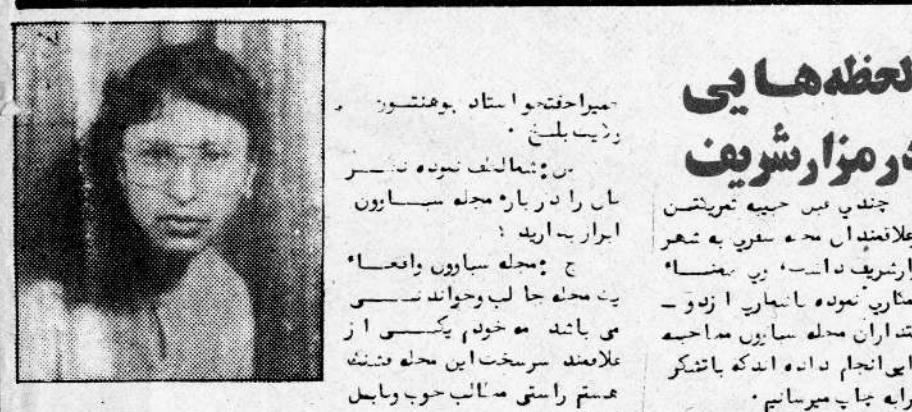 لحظه‌هایی
در مزار شریف
چندی قبل حبیبه
علاقمندان مجله سفری به شهر
مزارشریف داشت
نموده با شماری از دو ــ
ستداران مجله سباوون مصاحبه
هایی انجام داده اند که با تشکر
به چاپ میرسانیم .
حمیرا حقجو استاد پوهنتون
ولایت بلخ .
س : شما لطف نموده نظر
تان را در باره مجله سباوون
ابراز بدارید ؟
ج : مجله سباوون واقعاً
یک مجله جالب و خواندنی
می باشد خودم یکی از
علاقمند سرسخت این مجله قشنگ
هستم راستی مطالب خوب و